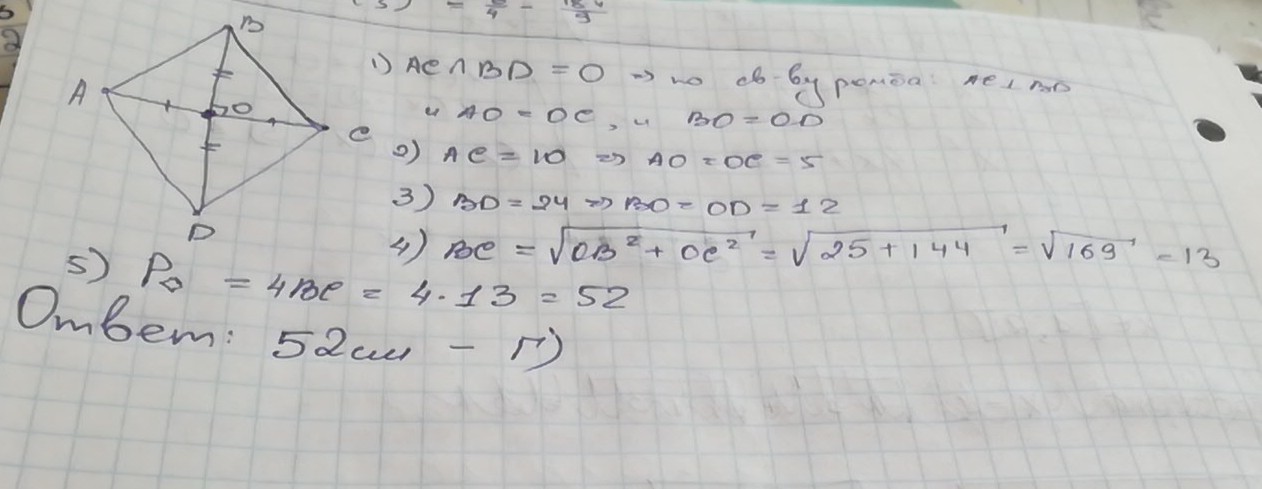 B
A
O
C
D
1) AC ∩ BD = O ⇒ по св-ву ромба: AC ⊥ BD
и AO = OC, и BO = OD
2) AC = 10 ⇒ AO = OC = 5
3) BD = 24 ⇒ BO = OD = 12
4) BC = √OB² + OC² = √25 + 144 = √169 = 13
5) P◇ = 4BC = 4 · 13 = 52
Ответ: 52см - Г)